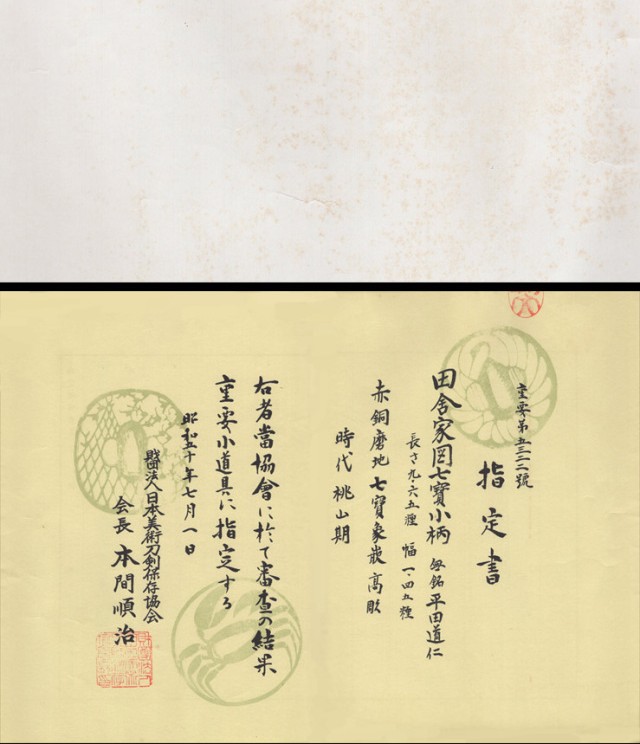 重要第五三二二號
指定書
田舎家図七寶小柄 無銘 平田道仁
長さ九・六五糎 幅一・四五糎
赤銅磨地 七寶象嵌 高彫
時代 桃山期
右者當協會に於て審査の結果
重要小道具に指定する
昭和五十年七月一日
財團法人日本美術刀剣保存協会
会長 本間順治